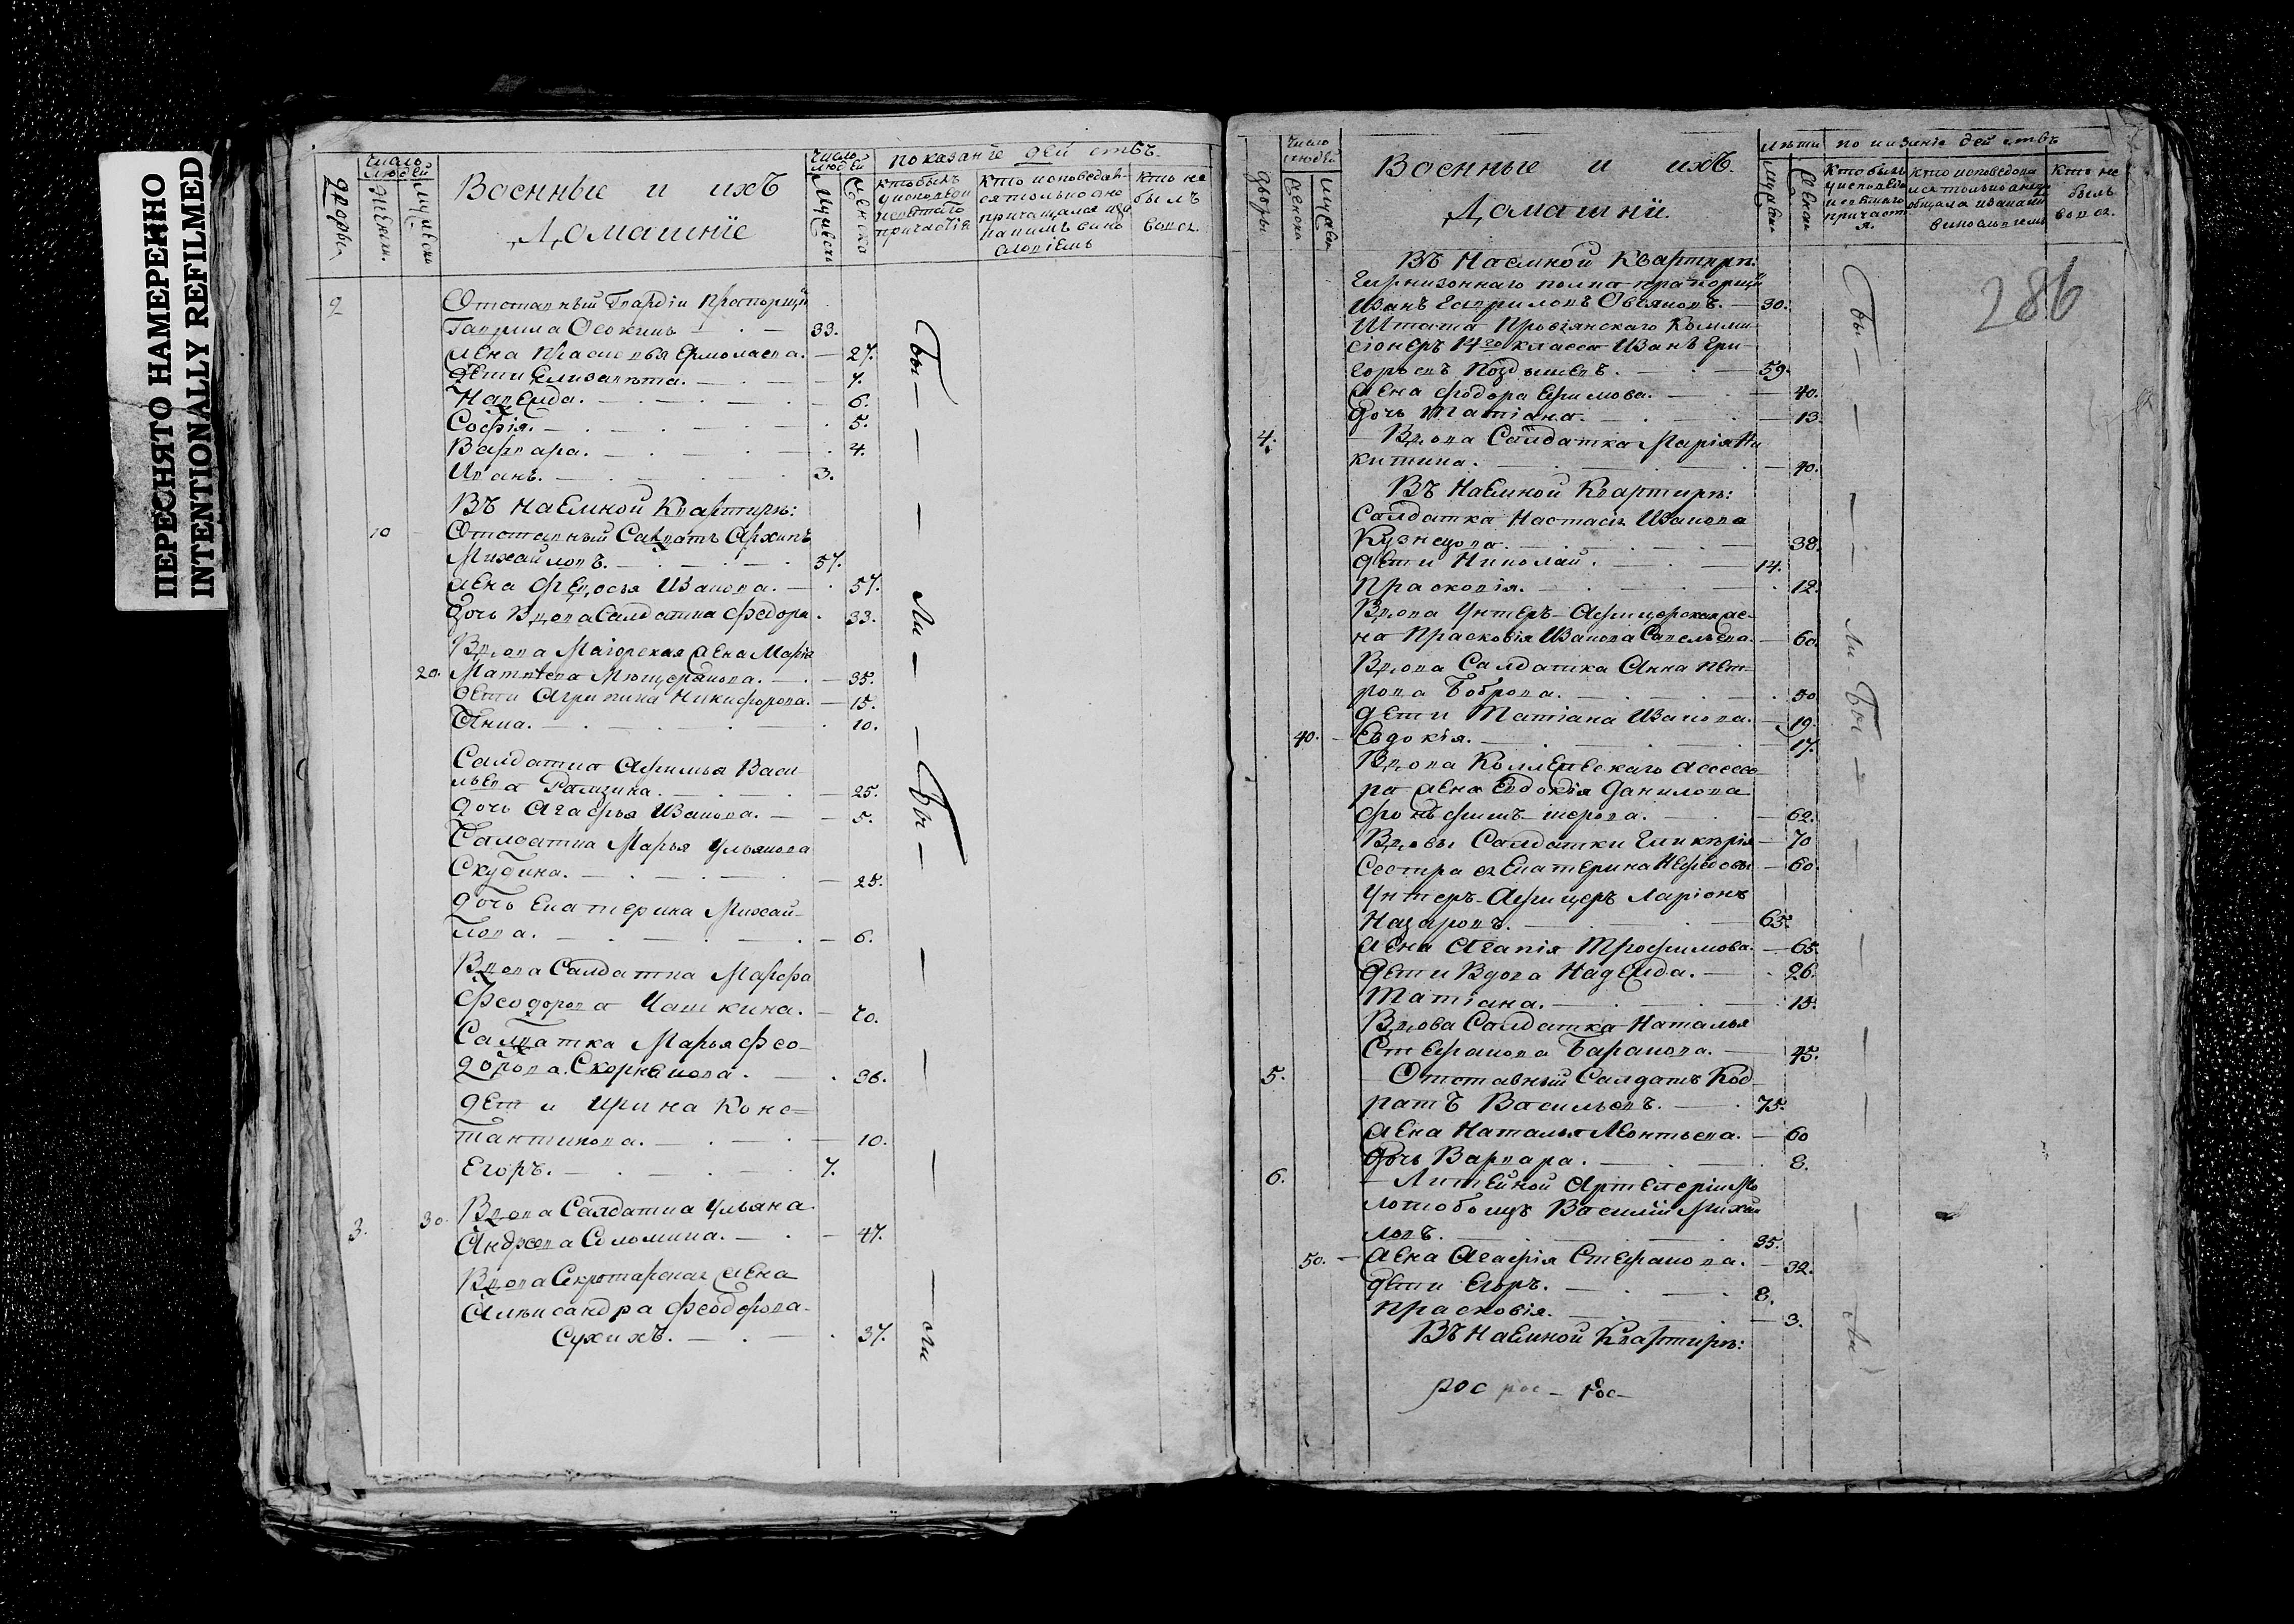 ПЕРЕСНЯТО НАМЕРЕННО
INTENTIONALLY REFILMED
Дворы
Число людей
Женск.
Мужеска
Военные и ихъ
Домашніе
Число людей
Мужеска
Женска
показаніе действъ
Кто былъ у исповеди и святаго причастія
Кто исповедался только а не причащался и за какимъ винословіемъ
Кто не былъ
2 Отставный Гвардіи Прапорщи
Гаврила Осокинъ 33.
Жена Прасковья Ермолаева. 27.
Дети Елизавета. 7.
Надежда. 6.
Софія. 5.
Варвара. 4.
Иванъ. 3.
Въ наемной Квартире:
10 Отставный Салдатъ Архипъ
Михайловъ. 57.
Жена Федосья Иванова. 57.
Дочь Вдова Салдатка Федора. 33.
Вдова Маіорская Жена Марія
20. Матвеева Мещерякова. 35.
Дети Агрипина Никифорова. 15.
Анна. 10.
Салдатка Афимья Васи-
льева Рамзина. 25.
Дочь Агафья Иванова. 5.
Салдатка Марья Ульянова
Скубина. 25.
Дочь Екатерина Михай-
лова. 6.
Вдова Салдатка Марфа
Феодорова Чашкина. 70.
Салдатка Марья Фео-
дорова Скорнякова. 36.
Дети Ирина Конс=
тантинова. 10.
Егоръ. 7.
3. 30. Вдова Салдатка Ульяна
Андреева Соломина. 47.
Вдова Секретарская Жена
Александра Феодорова
Сухихъ. 37.
Бы — ли — Бы — ли
Дворы
Число людей
Женска
Мужеск
Военные и ихъ
Домашніи.
Лѣта
Мужеска
Женска
показаніе действъ
Кто былъ у исповеди и святаго причастія.
Кто не былъ
286
Въ Наемной Квартире:
Гарнизоннаго полка прапорщи
Иванъ Гавриловъ Овсяновъ. 30.
Штата Провіянскаго Комми-
сіонеръ 14го класса Иванъ Гри-
горьевъ Поздышевъ. 59.
Жена Федора Ефимова. 40.
Дочь Татіана. 13.
4. Вдова Салдатка Марія Ни
китина. 40.
Въ Наемной Квартире:
Салдатка Настасья Иванова
Кузнецова. 38.
Дети Николай. 14.
Прасковія. 12.
Вдова Унтеръ-Афицерская Же-
на Прасковія Иванова Савельева. 60.
Вдова Салдатка Анна Пет-
рова Боброва. 50
Дети Татіана Иванова. 19.
40. Евдокія. 17.
Вдова Коллежскаго Ассесо
ра Жена Евдокія Данилова
62.
Вдовы Салдатки Гликерія 70
Сестра ея Екатерина Нефедовы 60.
Унтеръ-Афицеръ Ларіонъ
Назаровъ. 65.
Жена Агапія Трофимова. 65.
Дети Вдова Надежда. 26.
Татіана. 15.
Вдова Салдатка Наталья
Стефанова Баранова. 45.
5. Отставный Салдатъ Код-
ратъ Васильевъ. 75.
Жена Наталья Леонтьева. 60
Дочь Варвара. 8.
6. Литейной Артелеріи Мо
лотобоецъ Василій Михай
ловъ. 35.
50. Жена Агафія Стефанова. 32.
Дети Егоръ. 8.
Прасковія. 3.
Въ Наемной Квартире:
Бы — ли Бы — ли